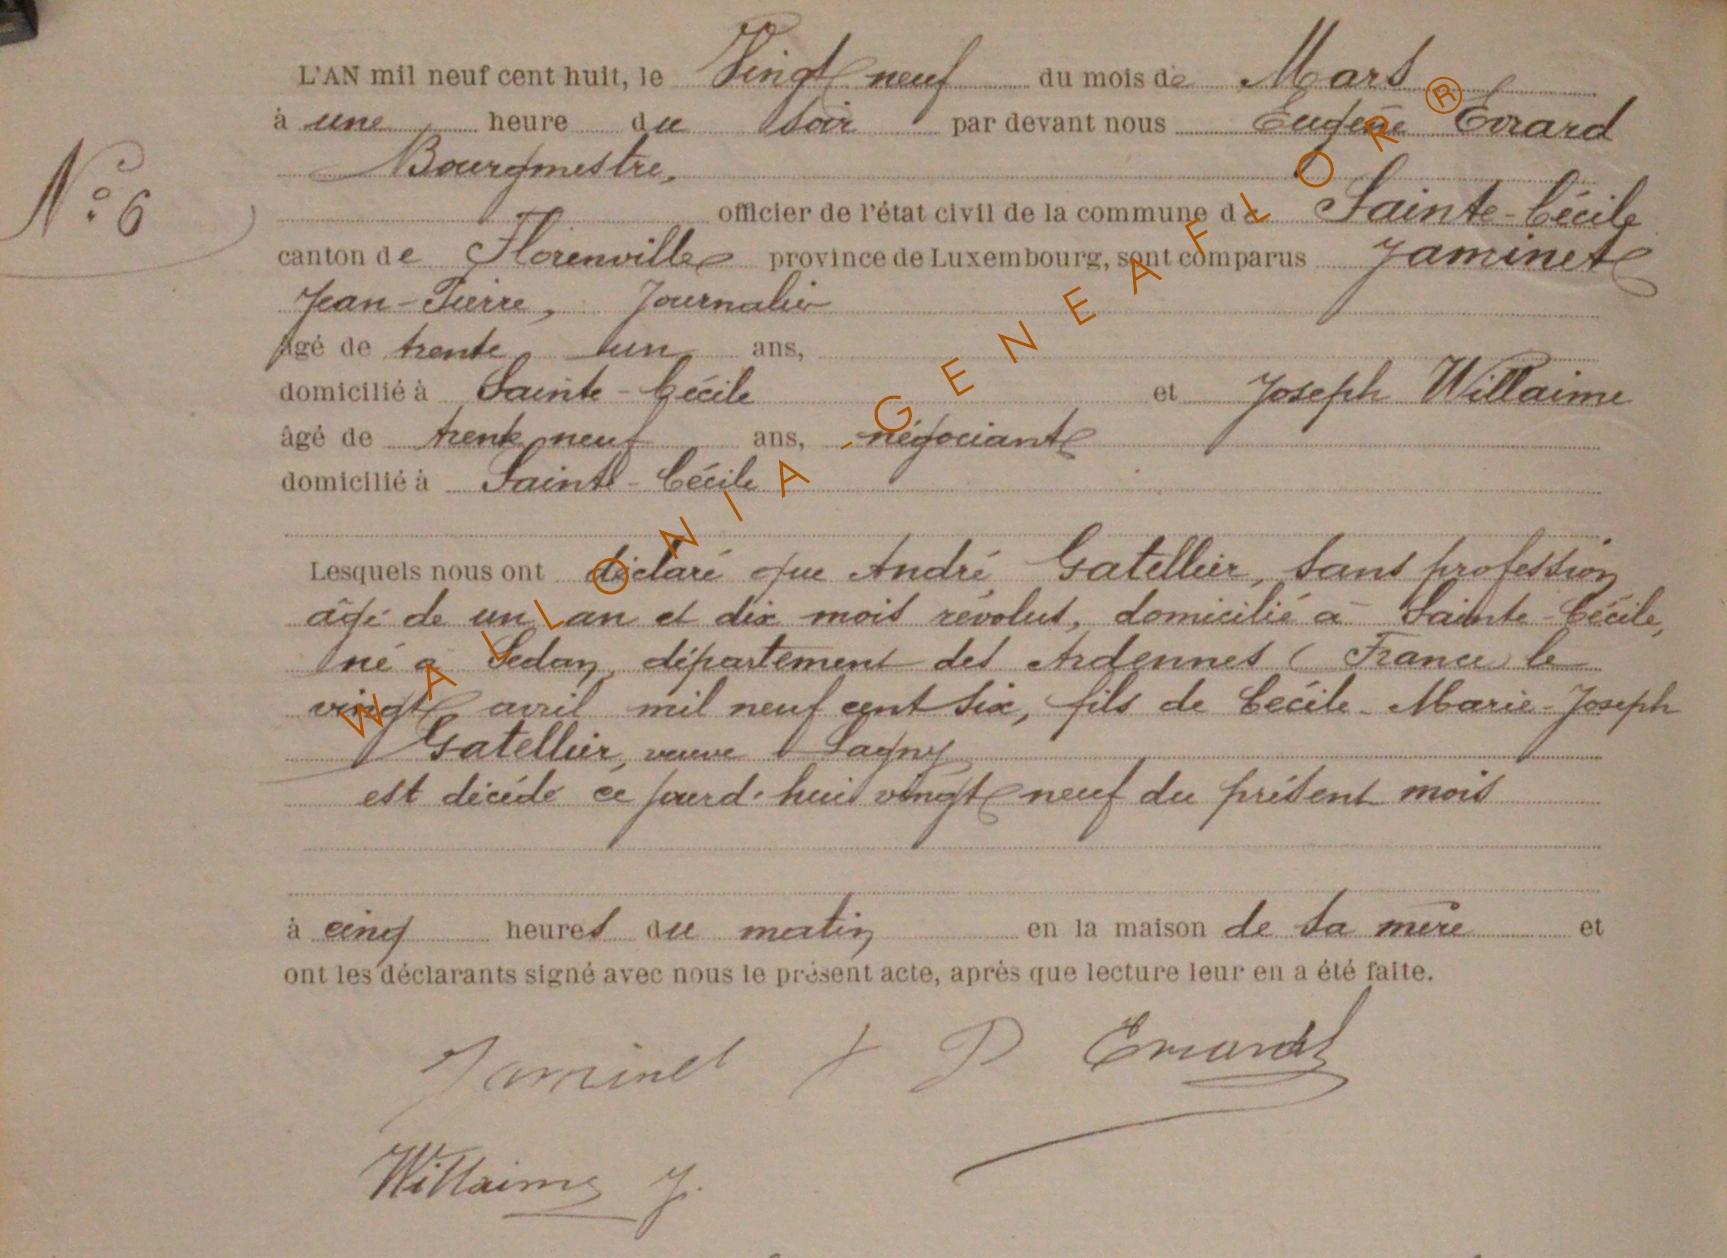 L'AN mil neuf cent huit, le Vingt neuf du mois de Mars
à une heure du soir par devant nous Eugène Evrard
Bourgmestre,
N° 6
officier de l'état civil de la commune de Sainte-Cécile
canton de Florenville province de Luxembourg, sont comparus Jaminet
Jean-Pierre, Journalier
âgé de trente un ans,
domicilié à Sainte-Cécile et Joseph Willaime
âgé de trente neuf ans, négociant
domicilié à Sainte-Cécile
Lesquels nous ont déclaré que André Gatellier, sans profession
âgé de un an et dix mois révolus, domicilié à Sainte-Cécile,
né à Sedan, département des Ardennes (France) le
vingt avril mil neuf cent six, fils de Cécile-Marie-Joseph
Gatellier, veuve Lagny
est décédé ce jourd'hui vingt neuf du présent mois
à cinq heures du matin en la maison de sa mère et
ont les déclarants signé avec nous le présent acte, après que lecture leur en a été faite.
Jaminet J P Evrard
Willaime J.
WALLONIA-GENEAFLOR®